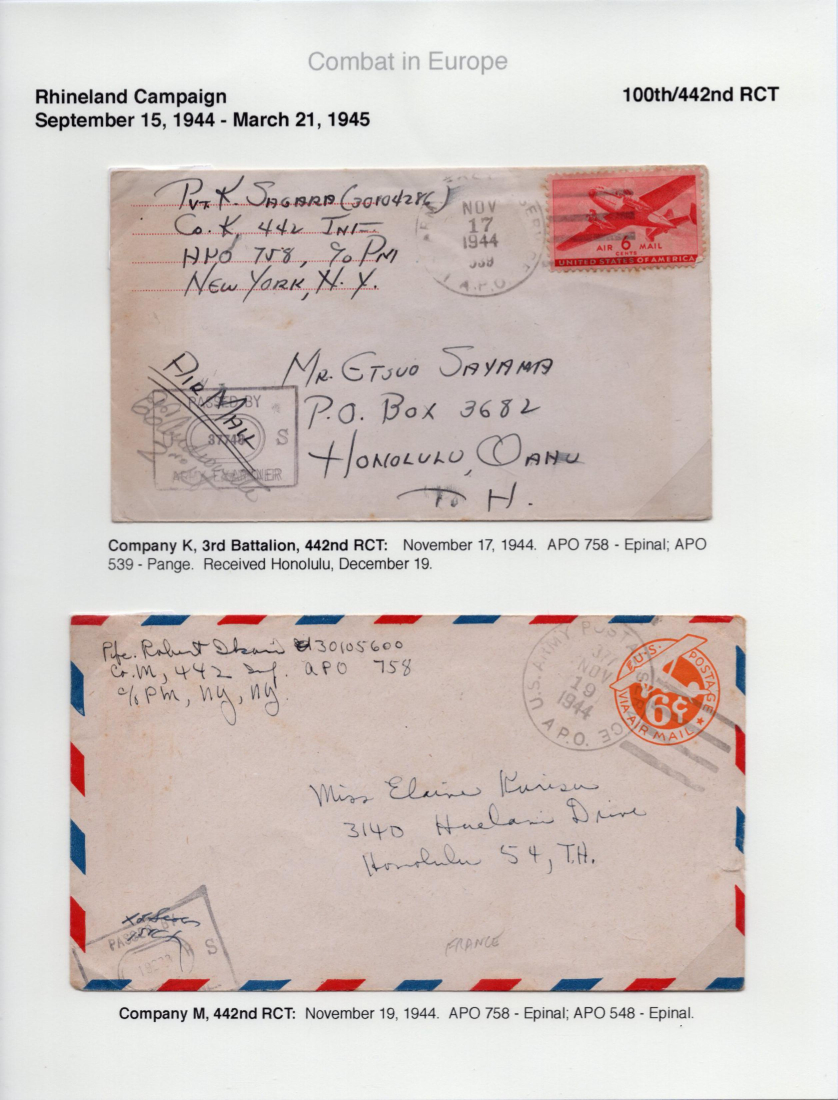 Combat in Europe
Rhineland Campaign
100th/442nd RCT
September 15, 1944 - March 21, 1945
Pvt K. SAGARA (30104286)
Co. K, 442 INF
APO 758, c/o PM
NEW YORK, N.Y.
NOV
17
1944
A.P.O.
AIR 6 MAIL
CENTS
UNITED STATES OF AMERICA
AIR MAIL
MR. ETSUO SAYAMA
P.O. BOX 3682
HONOLULU, OAHU
T. H.
PASSED BY
37748
S
ARMY EXAMINER
Company K, 3rd Battalion, 442nd RCT: November 17, 1944. APO 758 - Epinal; APO
539 - Pange. Received Honolulu, December 19.
Pfc. Robert 30105600
Co. M, 442 Inf. APO 758
c/o PM, NY, NY.
U.S. ARMY POSTAL
NOV
19
1944
A.P.O.
U.S. POSTAGE
6¢
VIA AIR MAIL
Miss Elaine Kurisu
3140 Huelani Drive
Honolulu 54, T.H.
PASSED BY
S
FRANCE
Company M, 442nd RCT: November 19, 1944. APO 758 - Epinal; APO 548 - Epinal.